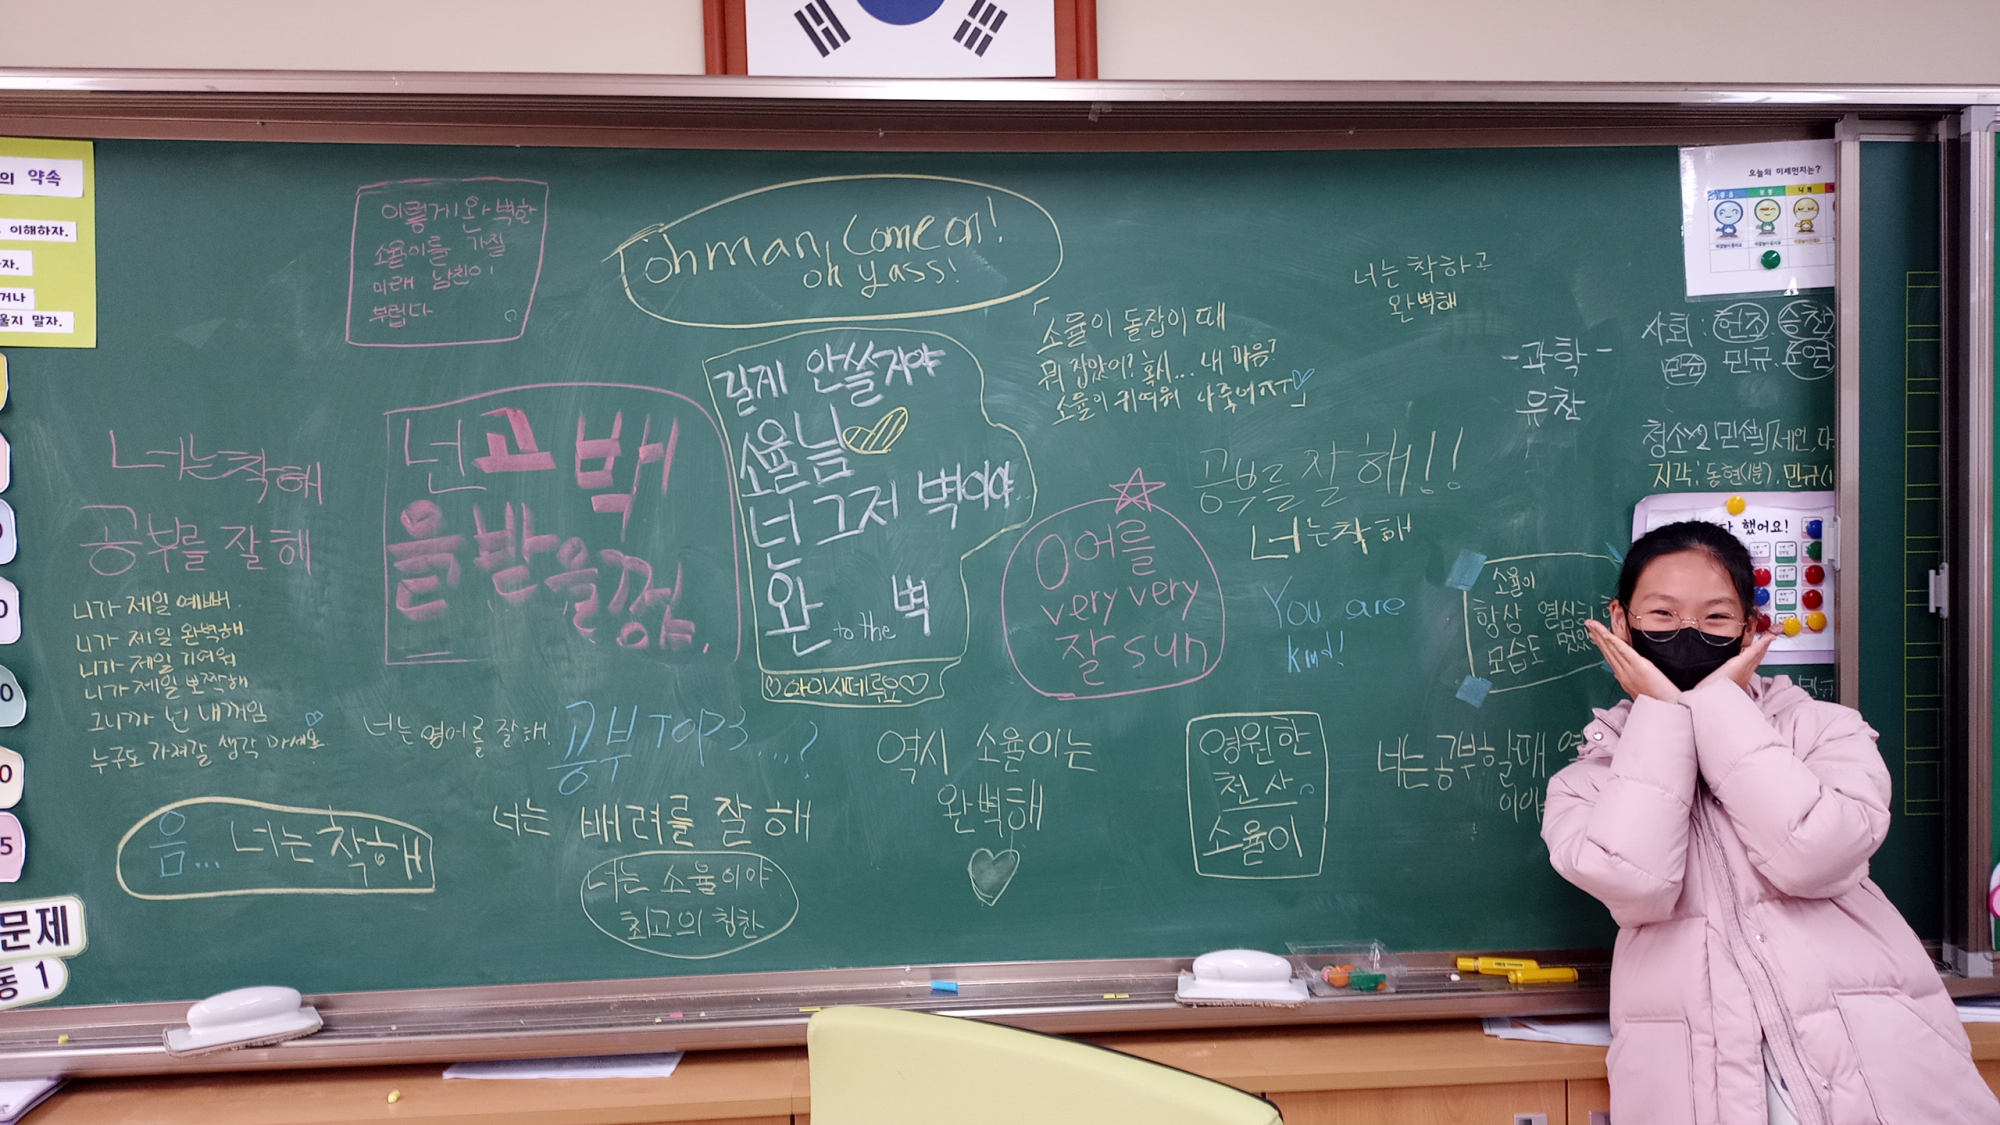 의 약속
이해하자.
자.
거나
울지 말자.
이렇게 완벽한
소율이를 가질
미래 남친이
부럽다
oh man, come on!
oh yass!
너는 착하고
완벽해
「소율이 돌잡이 때
뭐 잡았어? 혹시... 내 마음?
소율이 귀여워 나죽어ㅠㅜ♡」
길게 안쓸지야
소율님
넌 그저 벽이야
완 to the 벽
♡아이시떼루요♡
넌 고백
을 받을껄야.
너는 착해
공부를 잘해
니가 제일 예뻐.
니가 제일 완벽해.
니가 제일 귀여워
니가 제일 뽀짝해
그니까 넌 내꺼임
누구도 가져갈 생각 마세욤
공부를 잘해!!
너는 착해
영어를
very very
잘 sun
You are
kind!
-과학-
유찬
사회: 현진. 승찬
민규.
청소
지각: 동현(1분). 민규(1
오늘의 미세먼지는?
했어요!
소율이
항상 열심히
모습도 멋있
너는 영어를 잘해.
공부 TOP3....?
역시 소율이는
완벽해
영원한
천사
소율이
너는 공부할때 열
이야
음... 너는 착해
너는 배려를 잘해
너는 소율이야
최고의 칭찬
0
0
0
0
5
문제
동 1